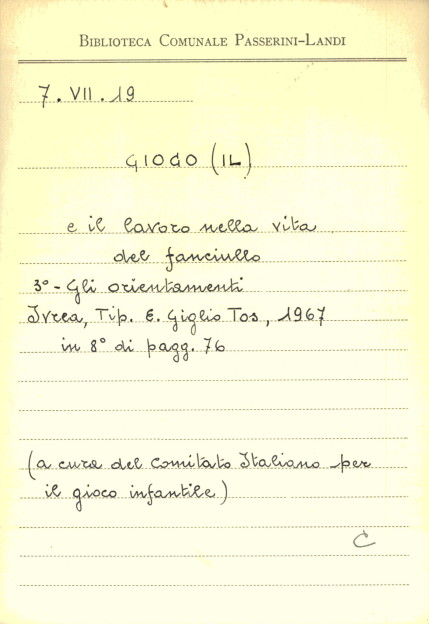 BIBLIOTECA COMUNALE PASSERINI-LANDI
7. VII. 19
GIOCO (IL)
e il lavoro nella vita
del fanciullo
3° - Gli orientamenti
Ivrea, Tip. E. Giglio Tos, 1967
in 8° di pagg. 76
(a cura del Comitato Italiano per
il gioco infantile)
C